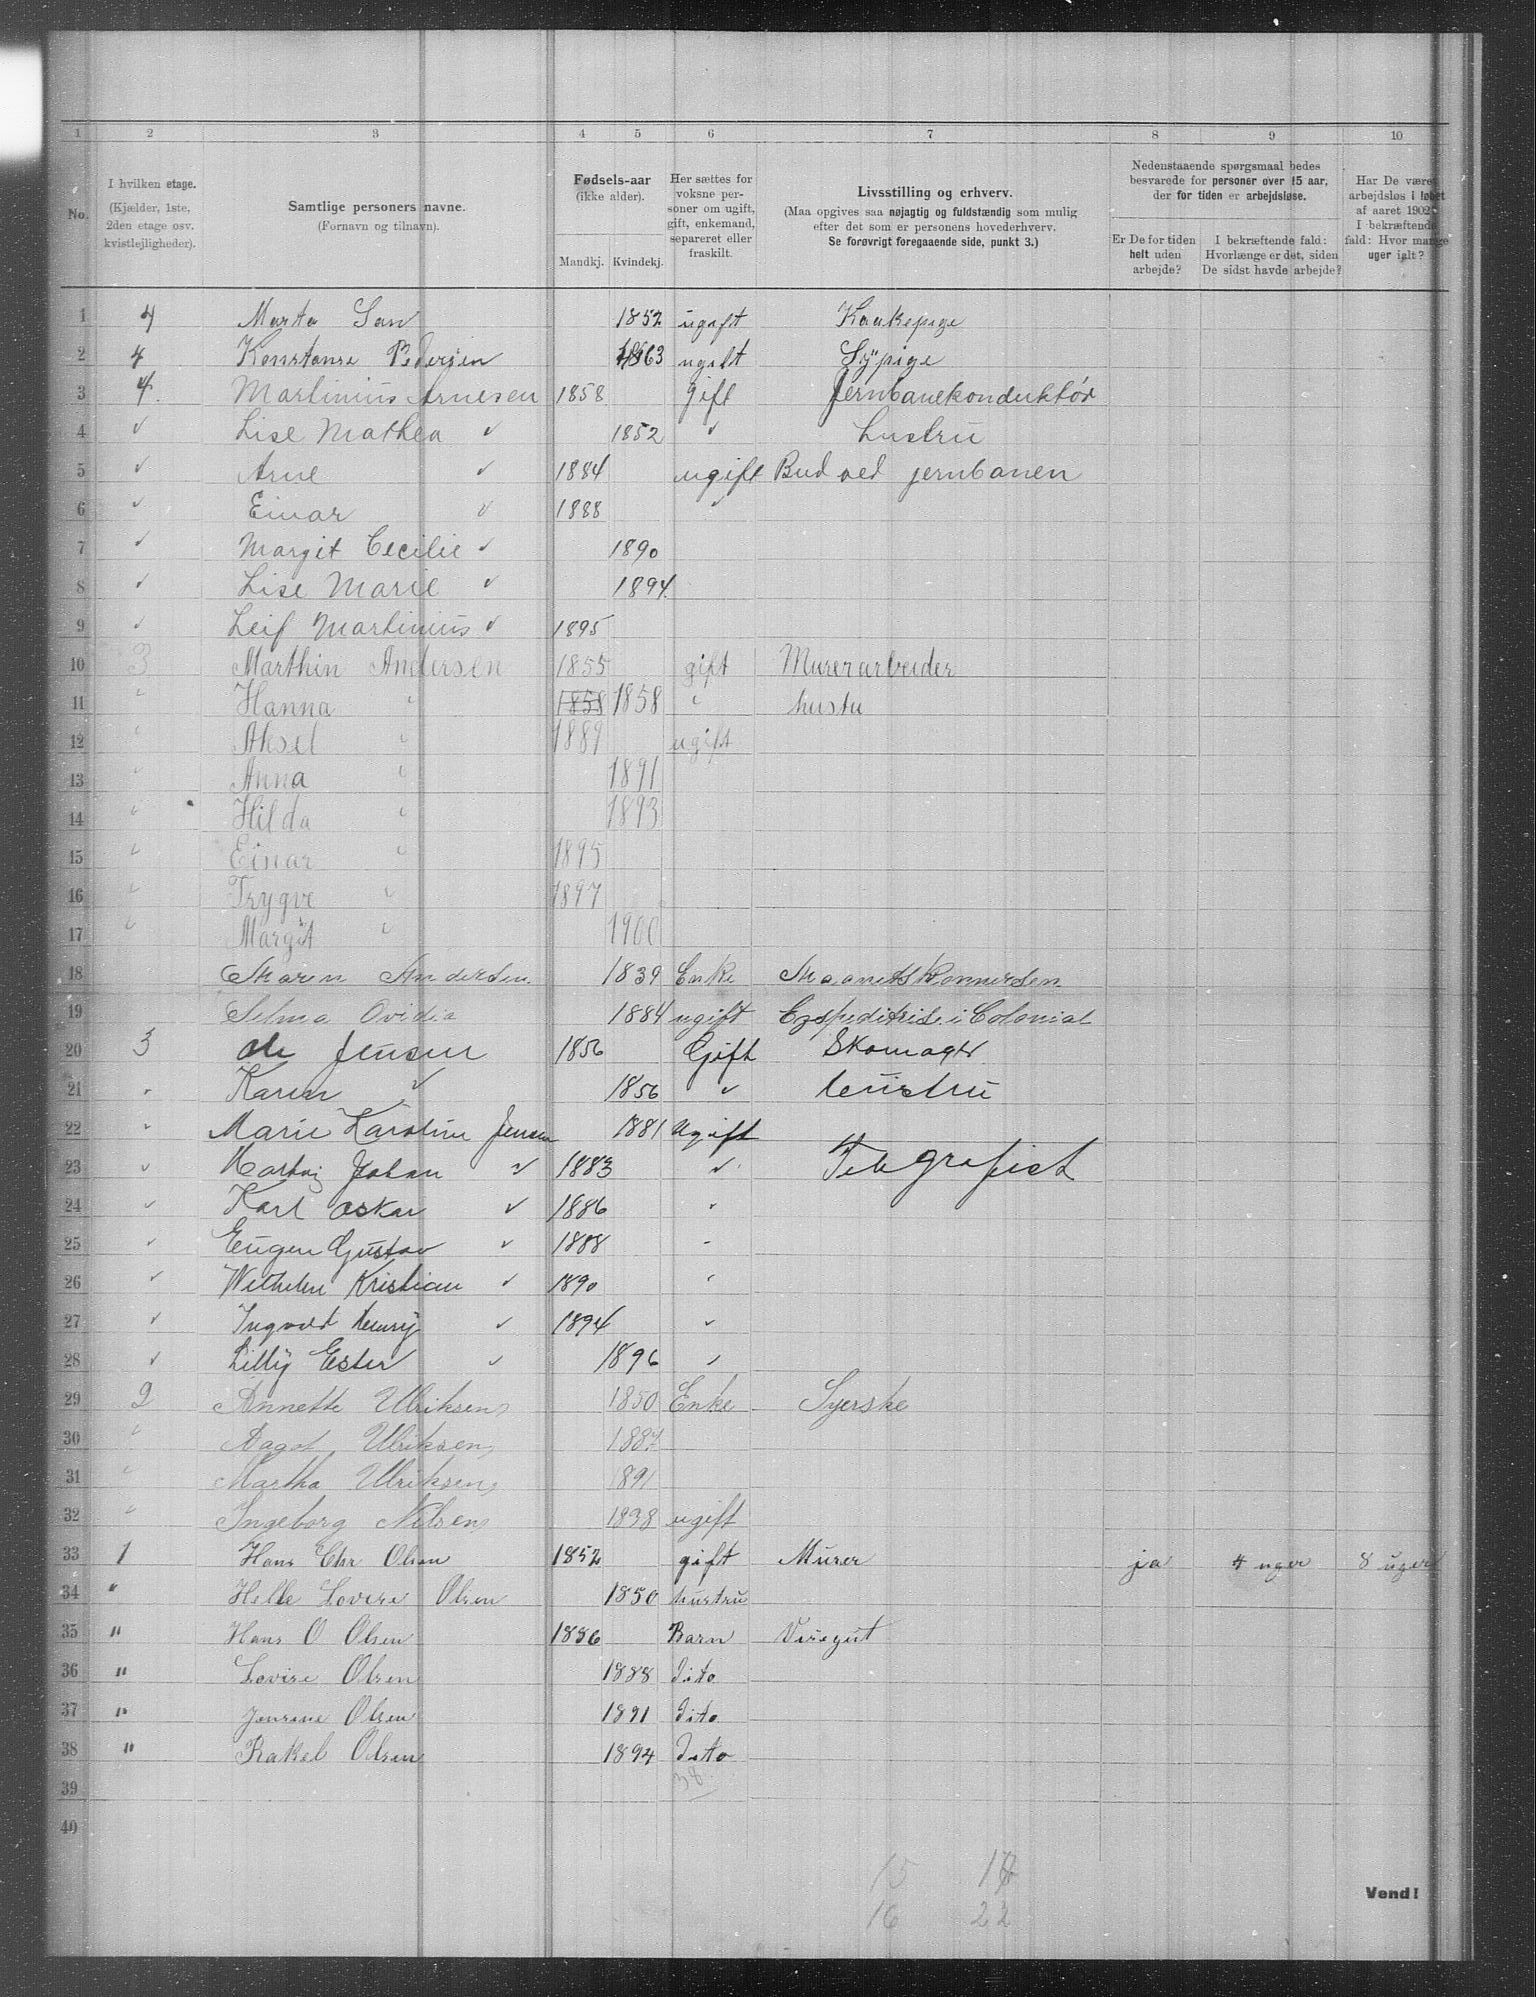 1 2 3 4 5 6 7 8 9 10
No.
I hvilken etage.
(Kjælder, 1ste,
2den etage osv.
kvistlejligheder).
Samtlige personers navne.
(Fornavn og tilnavn).
Fødsels-aar
(ikke alder).
Mandkj. Kvindekj.
Her sættes for
voksne per-
soner om ugift,
gift, enkemand,
separeret eller
fraskilt.
Livsstilling og erhverv.
(Maa opgives saa nøjagtig og fuldstændig som mulig
efter det som er personens hovederhverv.
Se forøvrigt foregaaende side, punkt 3.)
Nedenstaaende spørgsmaal bedes
besvarede for personer over 15 aar,
der for tiden er arbejdsløse.
Er De for tiden
helt uden
arbejde?
I bekræftende fald:
Hvorlænge er det, siden
De sidst havde arbejde?
Har De været
arbejdsløs i løbet
af aaret 1902?
I bekræftende
fald: Hvor mange
uger ialt?
1 4 Marta 1852 ugift Kaakepige
2 4 Konstanse Pedersen 1863 ugift Sypige
3 4. Martinius Arnesen 1858 gift Jernbanekonduktør
4 " Lise Mathea " 1852 " hustru
5 " Arne " 1884 ugift Bud ved jernbanen
6 " Einar " 1888 "
7 " Margit Cecilie " 1890
8 " Lise Marie " 1894.
9 " Leif Martinius " 1895
10 3 Marthin Andersen 1855 gift Murerarbeider
11 " Hanna " 1858 1858 " hustu
12 " Aksel " 1889 ugift
13 " Anna " 1891
14 " Hilda " 1893
15 " Einar " 1895
16 " Trygve " 1897
17 " Margit " 1900
18 Maren Andersen 1839 Enke
19 Selma Ovidia 1884 ugift Expeditrise i Colonial
20 3 Ole Jensen 1856 Gift Skomager
21 " Karen " 1856 " hustru
22 " Marie Karoline Jensen 1881 Ugift
23 " Johan " 1883 " Telegrafist
24 " Karl Oskar " 1886 "
25 " Eugen Gustav " 1888 "
26 " Wilhelm Kristian " 1890 "
27 " Ingvald Henry " 1894 "
28 " Lilly Ester " 1896 "
29 2 Annette Ulriksen 1850 Enke Syerske
30 " Aagot Ulriksen 1887
31 " Martha Ulriksen 1891
32 " Ingeborg Nilsen 1838 ugift
33 1 Hans Chr Olsen 1852 gift Murer ja 4 uger 8 uger
34 " Helle Lovise Olsen 1850 hustru
35 " Hans O Olsen 1886 Barn Visegut
36 " Lovise Olsen 1888 dito
37 " Jensine Olsen 1891 dito
38 " Rakel Olsen 1894 dito
39 38
40
15
16 22
Vend!